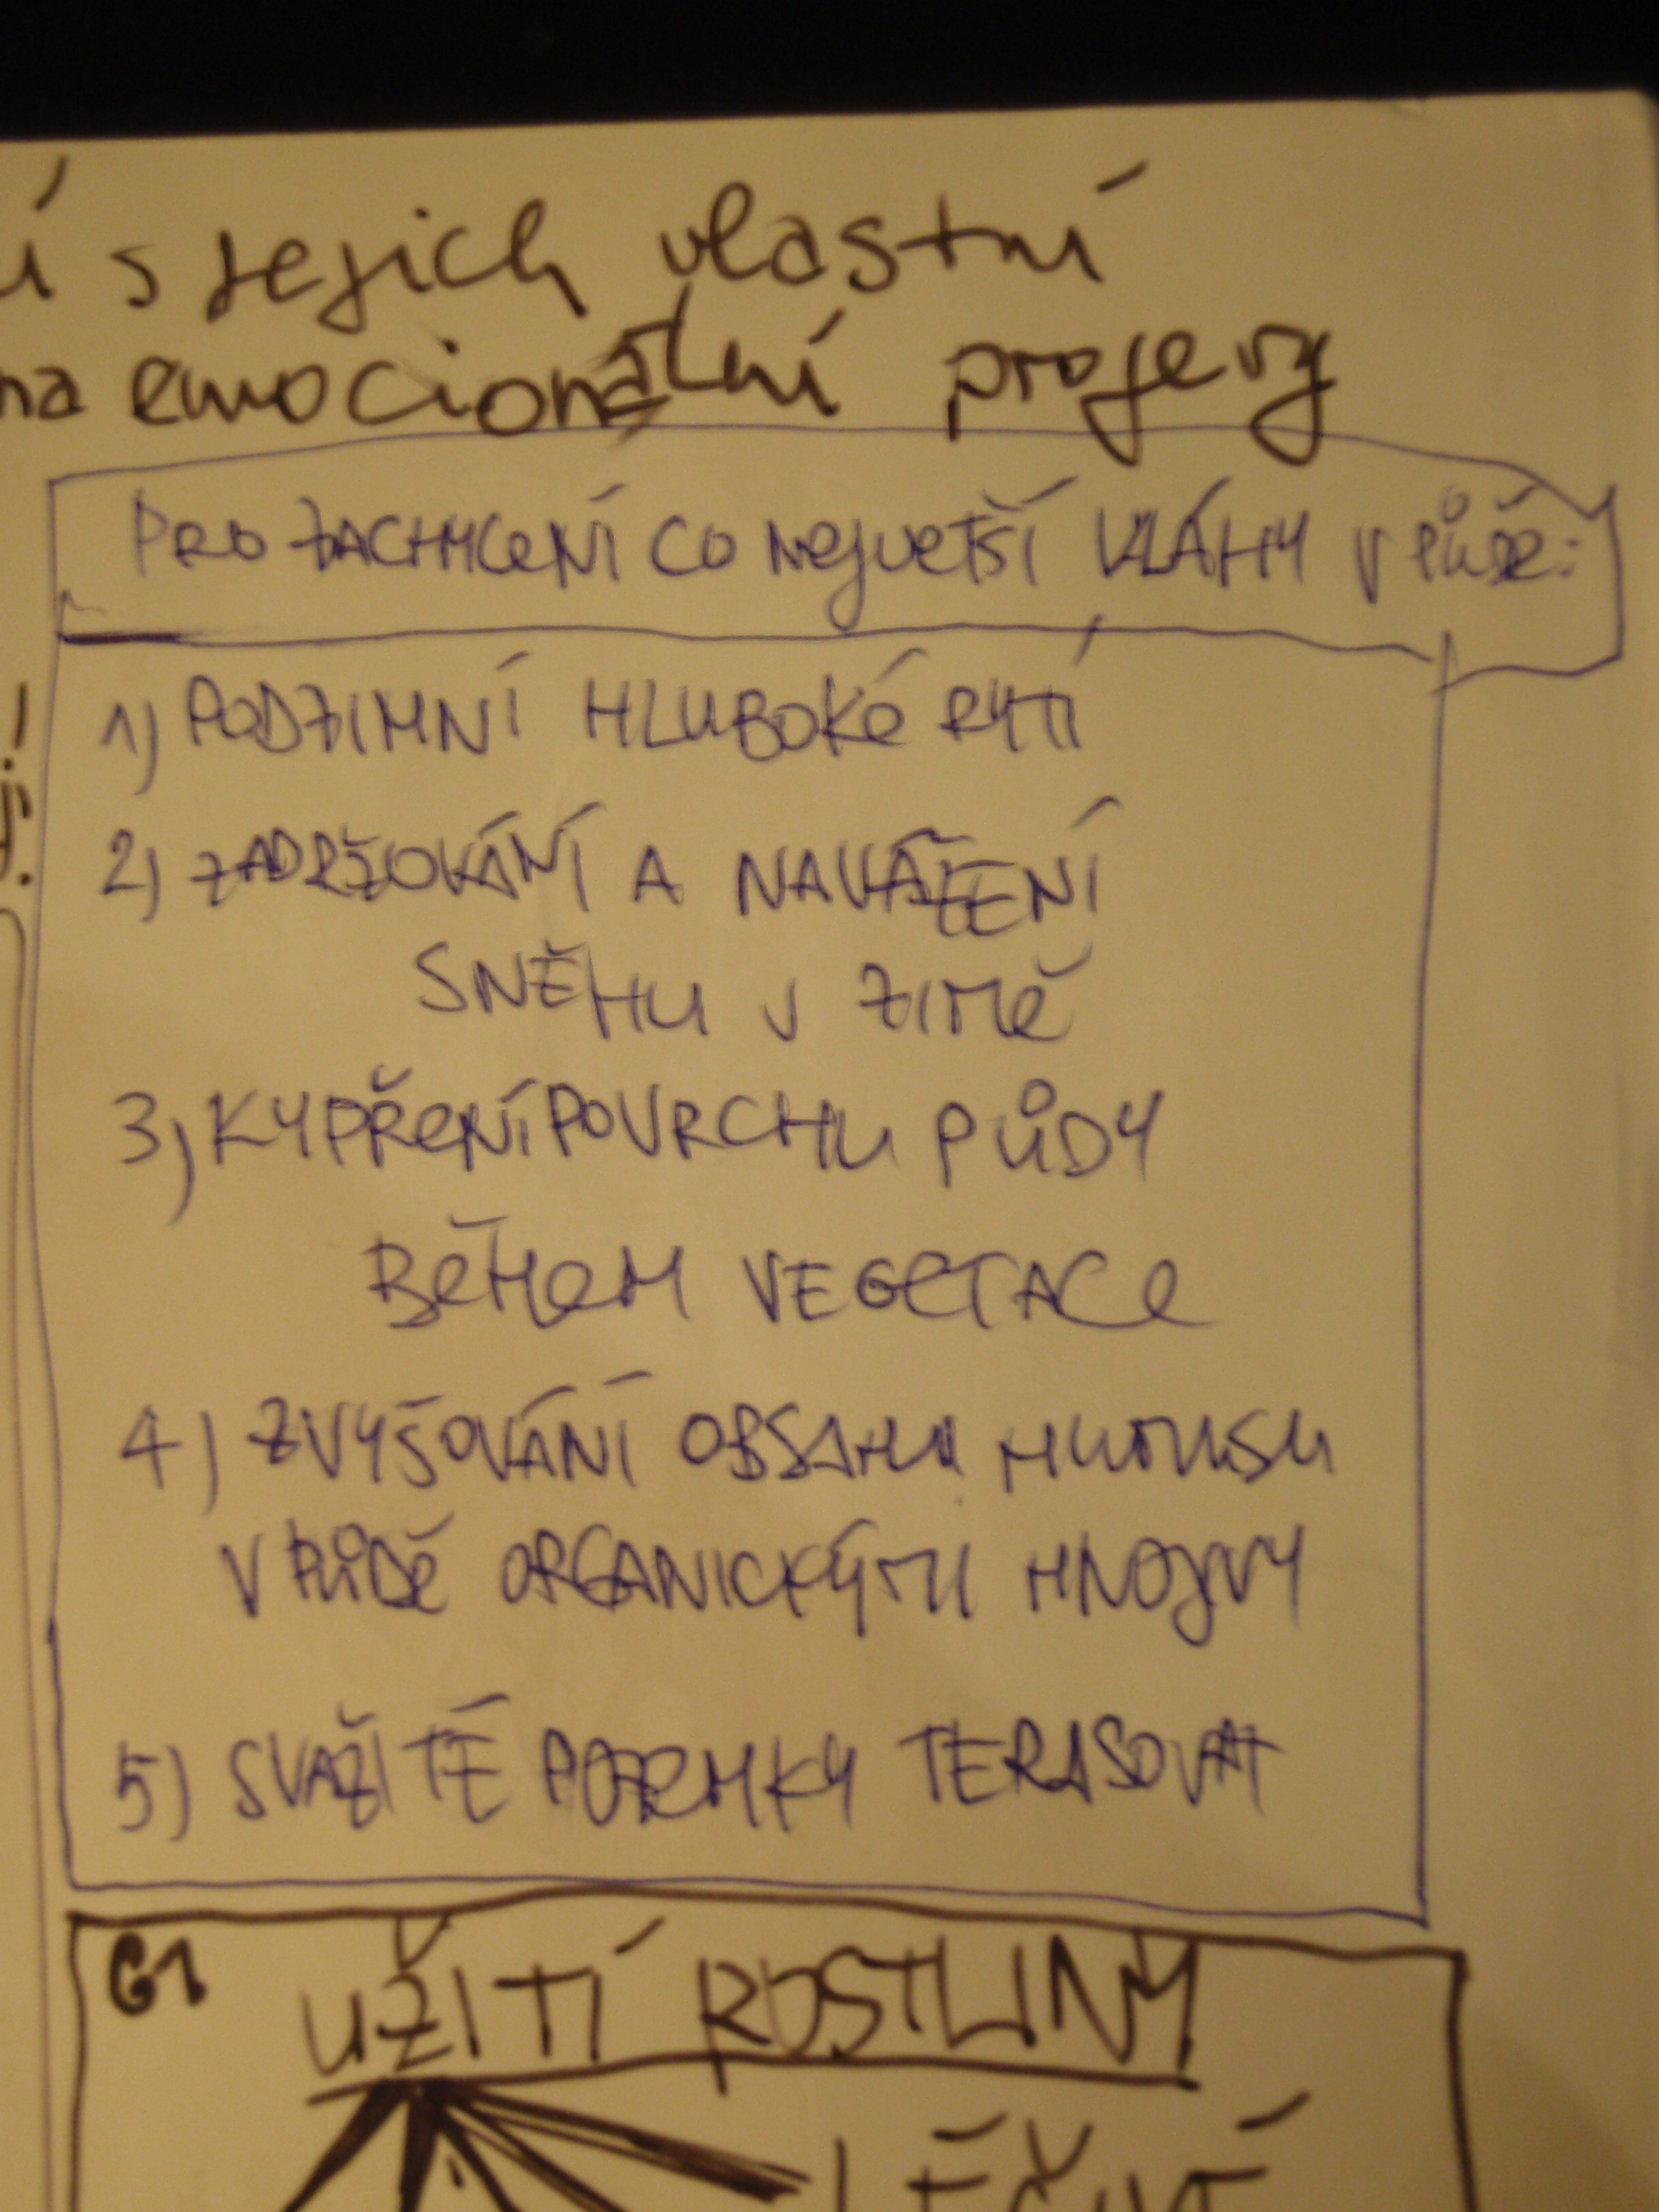 í s jejich vlastní
na emocionální projevy
PRO ZACHYCENÍ CO NEJVETŠÍ VLÁHY V PŮDĚ:
1) PODZIMNÍ HLUBOKÉ RYTÍ
2) ZADRŽOVÁNÍ A NAVÁŽENÍ
SNĚHU V ZIMĚ
3) KYPŘENÍ POVRCHU PŮDY
BĚHEM VEGETACE
4) ZVYŠOVÁNÍ OBSAHU HUMUSU
V PŮDĚ ORGANICKÝMI HNOJIVY
5) SVAŽITÉ POZEMKY TERASOVAT
G1
UŽITÍ ROSTLINY